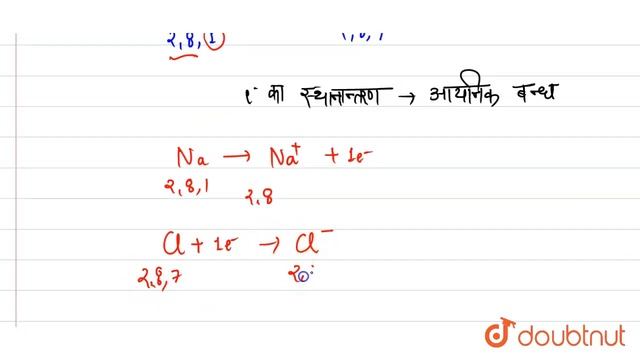 2,8,1
e⁻ का स्थानान्तरण → आयनिक बन्ध
Na → Na⁺ + 1e⁻
2,8,1 2,8
Cl + 1e⁻ → Cl⁻
2,8,7 2,
doubtnut